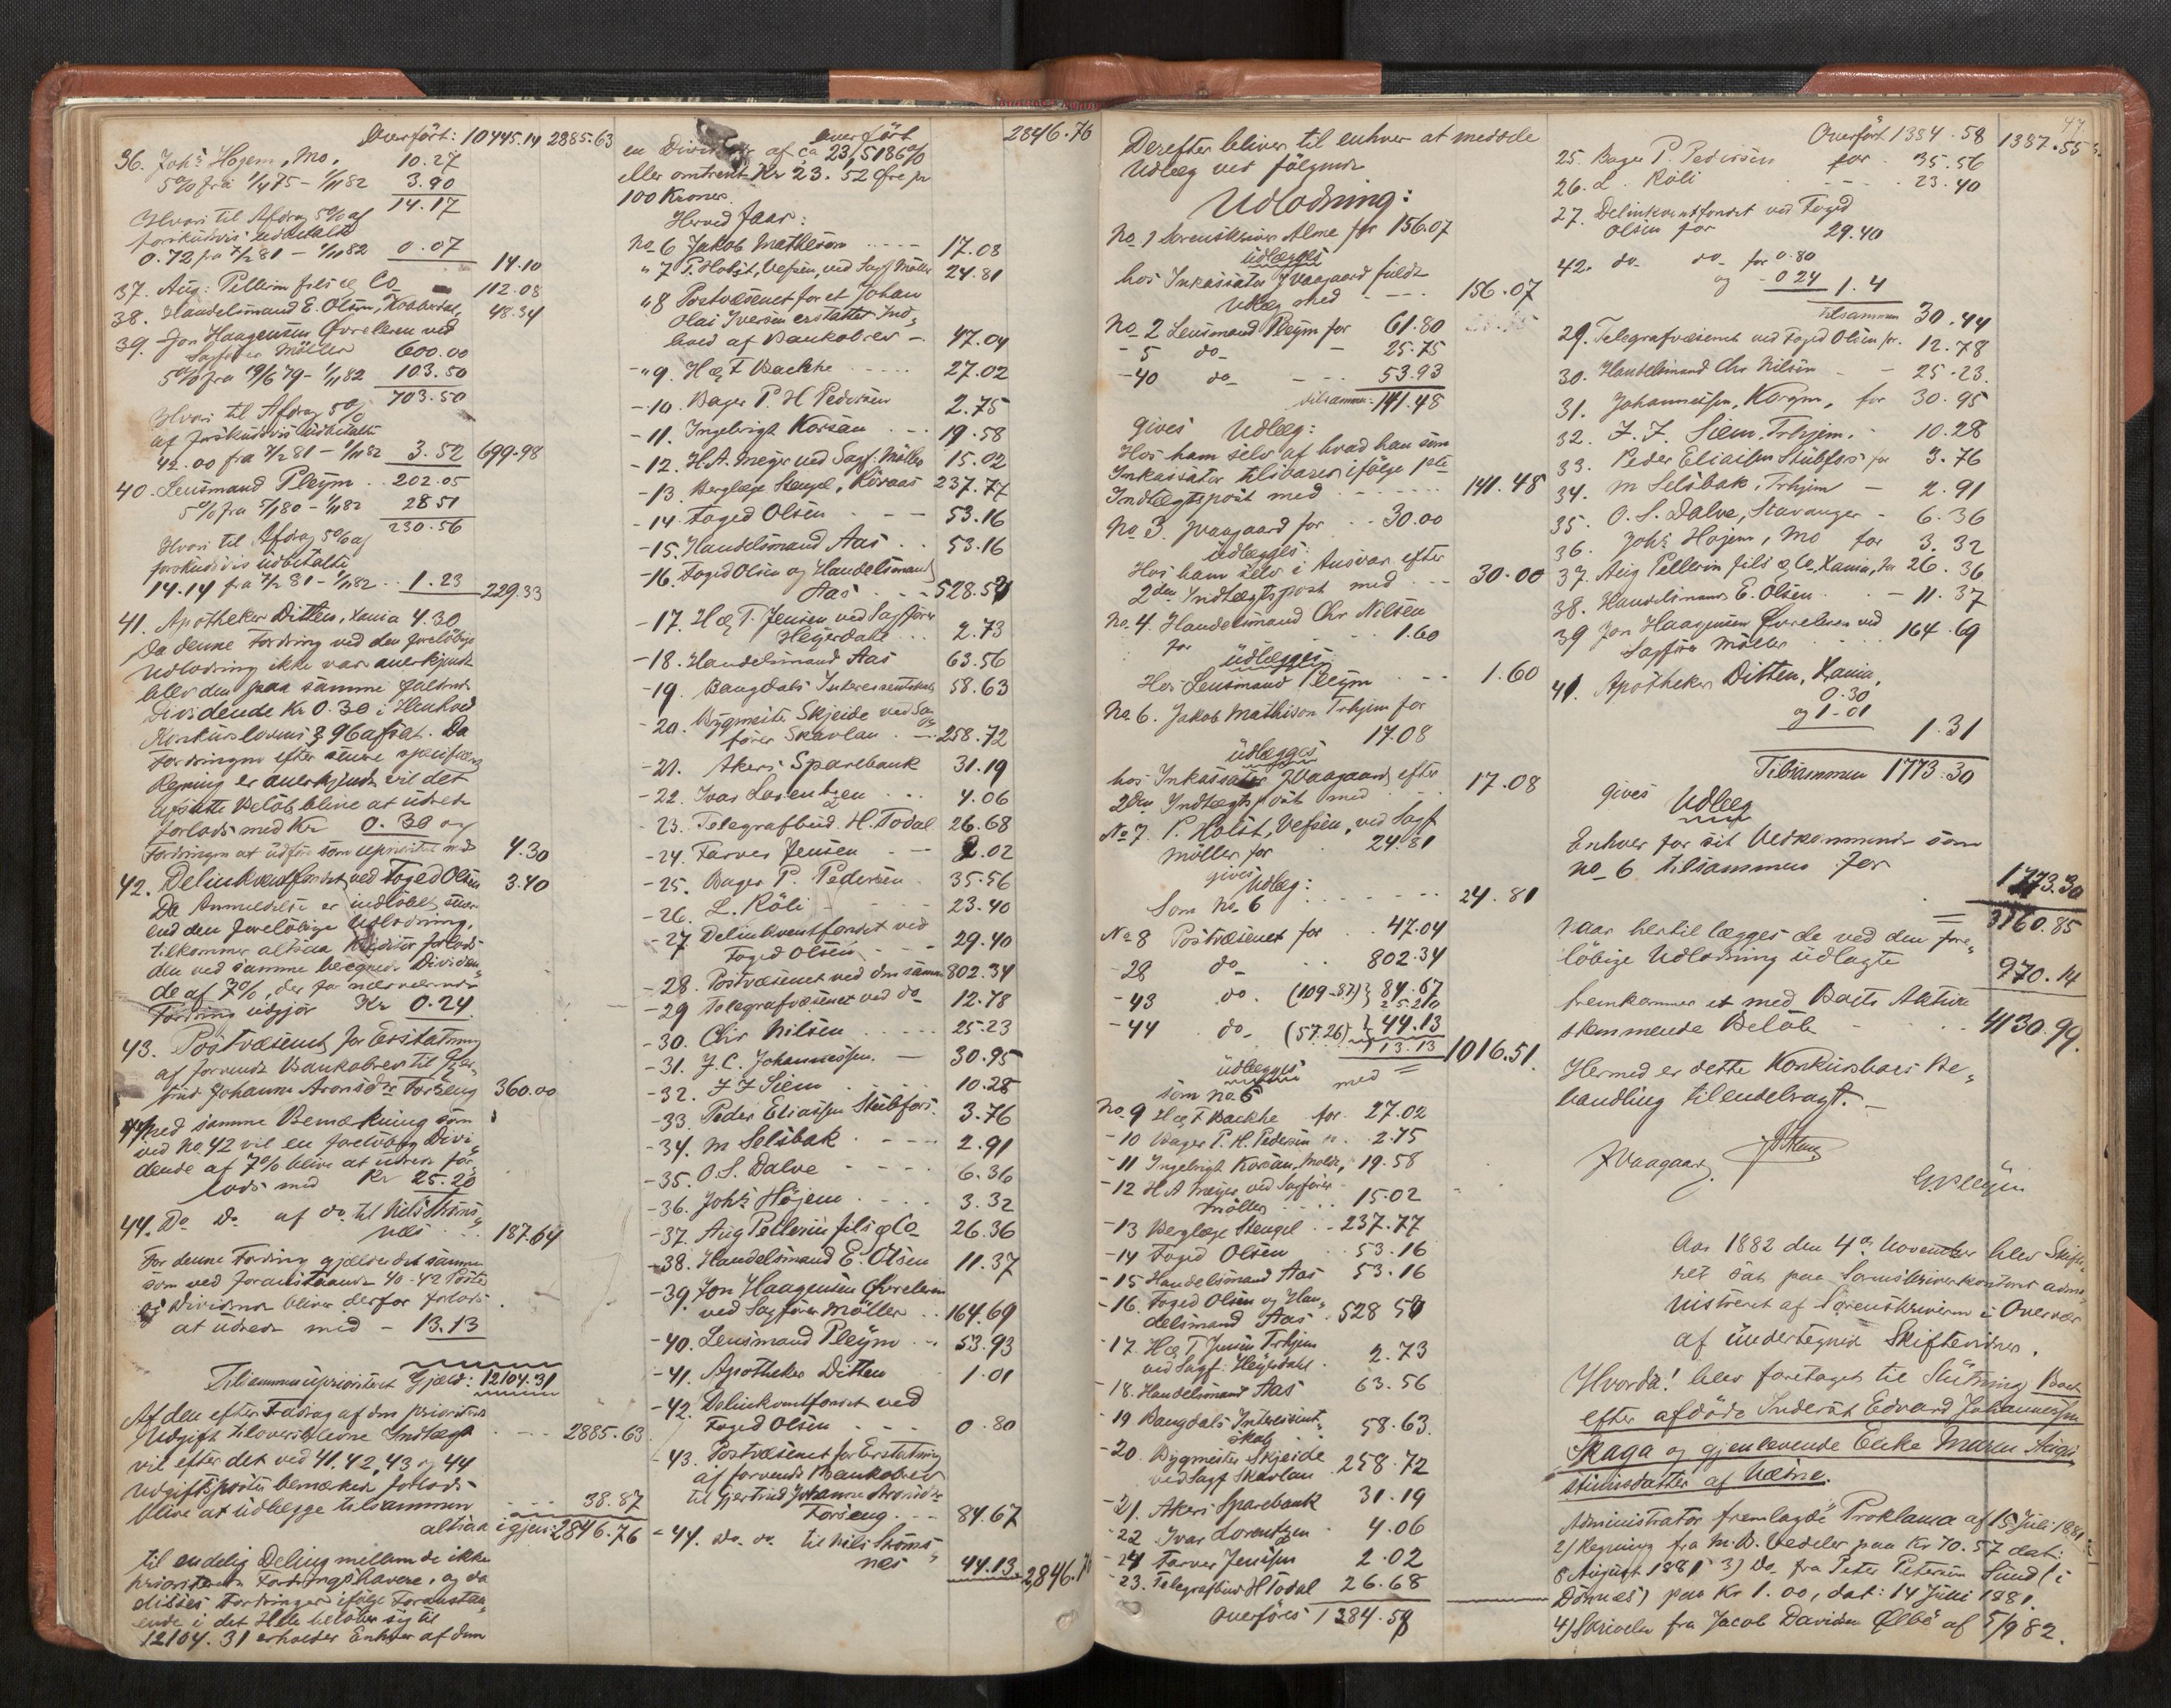 Overført: 10445.14 2885.63
36. Johs Højem, Mo. 10.27
5% fra 1/4 75 – 1/11 82 3.90
14.17
Hvori til Afdrag 5% af
forskudsvis udbetalte
0.72 fra 7/2 81 – 1/11 82 0.07
14.10
37. Aug: Pellerin fils & Co 112.08
38. Handelsmand E. Olsen, 48.34
39. Jon Haagensen Øvreleren ved
Sagfører Møller 600.00
5% fra 19/6 79 – 1/11 82 103.50
703.50
Hvori til Afdrag 5%
af forskudsvis udbetalte
42.00 fra 7/2 81 – 1/11 82 3.52 699.98
40. Lensmand Pleÿm 202.05
5% fra 5/1 80 – 1/11 82 28.51
230.56
Hvori til Afdrag 5% af
forskudsvis udbetalte
14.14 fra 7/2 81 – 1/11 82 1.23 229.33
41. Apotheker Ditten, Xania 4.30
Da denne Fordring ved den foreløbige
Udlodning ikke var anerkjendt
blev den paa samme faldende
Dividende Kr 0.30 i Henhold
Konkurslovens § 96 afsat. Da
Fordringen efter senere specificeret
Regning er anerkjendt vil det
afsatte Beløb blive at udrede
forlods med Kr 0.30 og
Fordringen at udføre som uprioritet med 4.30
42. Delinkventfondet ved Foged Olsen 3.40
Da Anmeldelse er indløbet senere
end den foreløbige Udlodning,
tilkommer altsaa Kreditor forlods
den ved samme beregnede Dividen-
de af 7%, der for nærværende
Fordring udgjør Kr 0.24
43. Postvæsenet for Erstatning
af forvundne Bankobrev til Gjer-
trud Johanna Aronsdr Forseng 360.00
Med samme Bemærkning som
ved No 42 vil en foreløbig Divi-
dende af 7% blive at udrede for-
lods med Kr 25.20
44. Do Do af do til Nils Strøms-
næs 187.64
For denne Fordring gjælder det samme
som ved foranstaaende 40-42 Poster
og Dividende bliver derfor forlods
at udrede med – 13.13
Tilsammen uprioritert Gjæld: 12104.31
Af den efter Fradrag af den prioriterte
Udgift tiloversblevne Indtægt 2885.63
vil efter det ved 41, 42, 43 og 44
Udgiftsposter bemærkede forlods
blive at udlægge tilsammen 38.87
altsaa igjen: 2846.76
til endelig Deling mellem de ikke
prioriterede Fordringshavere, og da
disses Fordringer ifølge Foranstaa-
ende i det Hele beløber sig til
12104.31 erholder Enhver af dem
Overført 2846.76
en Dividende af ca 23,5186%
eller omtrent Kr 23.52 Øre pr
100 Kroner.
Herved faar:
No 6 Jakob Matheson 17.08
" 7 P. Holst, Vefsen, ved Sagf Møller 24.81
" 8 Postvæsenet for et Johan
Olai Iversen erstattet Ind-
hold af Bankobrev – 47.04
" 9. H & F Bachke 27.02
-10. Bager P. H Pedersen 2.75
-11. Ingebrigt Korsan 19.58
-12. H. A. Meyer ved Sagf: Møller 15.02
-13. Berglæge Stengel, Köraas 237.77
-14. Foged Olsen 53.16
-15. Handelsmand Aas 53.16
-16. Foged Olsen og Handelsmand
Aas 528.51
-17. H & T. Jensen ved Sagfører
Heÿerdahl 2.73
-18. Handelsmand Aas 63.56
-19. Bangdals Interessentskab 58.63
-20. Bygmester Skjeide ved Sag-
fører Skavlan 258.72
-21. Akers Sparebank 31.19
-22. Ivar Lorentzen 4.06
-23. Telegrafbud H. Todal 26.68
-24. Farver Jensen 2.02
-25. Bager P. Pedersen 35.56
-26. L. Röli 23.40
-27. Delinkventfondet ved
Foged Olsen 29.40
-28. Postvæsenet ved den samme 802.34
-29 Telegrafvæsenet ved do 12.78
-30. Chr Nilsen 25.23
-31. J. C. Johannessen. 30.95
-32. F F Siem 10.28
-33. Peder Eliassen Stubfors. 3.76
-34. M Selsbak 2.91
-35. O. S. Dalve 6.36
-36. Johs Højem 3.32
-37. Aug Pellerin fils & Co 26.36
-38. Handelsmand E. Olsen 11.37
-39. Jon Haagensen Øvreleren
ved Sagfører Møller 164.69
-40. Lensmand Pleÿm 53.93
-41. Apotheker Ditten 1.01
-42. Delinkventfondet ved
Foged Olsen 0.80
-43. Postvæsenet for Erstatning
af forvundne Bankobrev
til Gjertrud Johanna Aronsdr
Forseng 84.67
-44. Do. do. til Nils Strøms-
næs 44.13 2846.76
Derefter bliver til enhver at meddele
Udlæg ved følgende
Udlodning:
No. 1 Sorenskriver Alme for 156.07
udlægges
hos Inkassator J Vaagaard fuldt
Udlæg med 156.07
No 2 Lensmand Pleÿm for 61.80
- 5 do 25.75
- 40 do 53.93
tilsammen 141.48
gives Udlæg:
Hos ham selv af hvad han som
Inkassator tilsvarer ifølge 1ste
Indtægtspost med 141.48
No 3. J Vaagaard for 30.00
udlægges:
Hos ham selv i Ansvar efter
2den Indtægtspost med 30.00
No. 4. Handelsmand Chr Nilsen
for 1.60
udlægges
Hos Lensmand Pleÿm 1.60
No. 6. Jakob Mathison Trhjem for
17.08
udlægges
hos Inkassator J Vaagaard efter
2den Indtægtspost med 17.08
No 7. P. Holst, Vefsen, ved Sagf
Møller for 24.81
gives Udlæg:
Som No 6 24.81
No 8 Postvæsenet for 47.04
- 28 do 802.34
- 43 do. (109-87) 84.67
25.20
- 44 do (57.26) 44.13
13.13 1016.51.
udlægges
som No 6 med
No. 9 H & F Backhe for 27.02
- 10 Bager P. H. Pedersen 2.75
- 11 Ingebrigt Korsan, Molde, 19.58
- 12 H A Meyer ved Sagfører
Møller 15.02
- 13 Berglæge Stengel 237.77
- 14 Foged Olsen 53.16
- 15 Handelsmand Aas 53.16
- 16. Foged Olsen og Han-
delsmand Aas 528 51
- 17. H & T Jensen Trhjem
ved Sagf: Heÿerdahl 2.73
- 18. Handelsmand Aas 63.56
- 19 Bangdals Interessent-
skab 58.63.
- 20. Bygmester Skjeide
ved Sagf Skavlan 258.72
- 21. Akers Sparebank 31.19
- 22 Ivar Lorentzen 4.06
- 24 Farver Jensen 2.02
- 23. Telegrafbud H Todal 26.68
Overføres 1384.58
47
Overført 1384.58 1387.55
25. Bager P. Pedersen for 35.56
26. L. Röli 23.40
27. Delinkventfondet ved Foged
Olsen for 29.40
42. do do for 0.80
og 0 24 1.4
tilsammen 30.44
29. Telegrafvæsenet ved Foged Olsen for 12.78
30. Handelsmand Chr Nilsen 25.23.
31. Johannessen, Korgen, for 30.95
32. F. F. Siem, Trhjem. 10.28
33. Peder Eliassen Stubfors for 3.76
34. M Selsbak, Trhjem 2.91
35. O. S. Dalve, Stavanger 6.36
36. Johs Højem, Mo for 3.32
37. Aug Pellerin fils & Co, Xania, for 26.36
38. Handelsmand E. Olsen 11.37
39 Jon Haagensen Øvreleren ved
Sagfører Møller 164.69
41. Apotheker Ditten, Xania,
0.30
og 1-01 1.31
Tilsammen 1773.30
gives Udlæg
Enhver for sit Vedkommende som
No 6 tilsammen for 1773.30
3160.85
naar hertil lægges de ved den fore-
løbige Udlodning udlagte 970.14
fremkommer et med Boets Aktiva
stemmende Beløb 4130.99.
Hermed er dette Konkursboes Be-
handling tilendebragt.
J Vaagaard.
G. Pleÿm
Aar 1882 den 4de November blev Skifte-
ret sat paa Sorenskriverkontoret admi-
nistreret af Sorenskriveren i Overvær
af undertegnede Skiftevidner.
Hvorda! blev foretaget til Slutning Boet
efter afdøde Inderst Edvard Johannessen
Skaga og gjenlevende Enke Maren Augu-
stinusdatter af Næsne.
Administrator fremlagde Proklama af 15 Juli 1881
2) Regning fra M. B. Vedeler paa Kr 70.57 dat:
8 August 1881 3) Do. fra Peter Petersen Sund (i
Dønnæs) paa Kr 1.00, dat: 14 Juli 1881.
4) Skrivelse fra Jacob Davidsen Ølbø af 5/9 82.